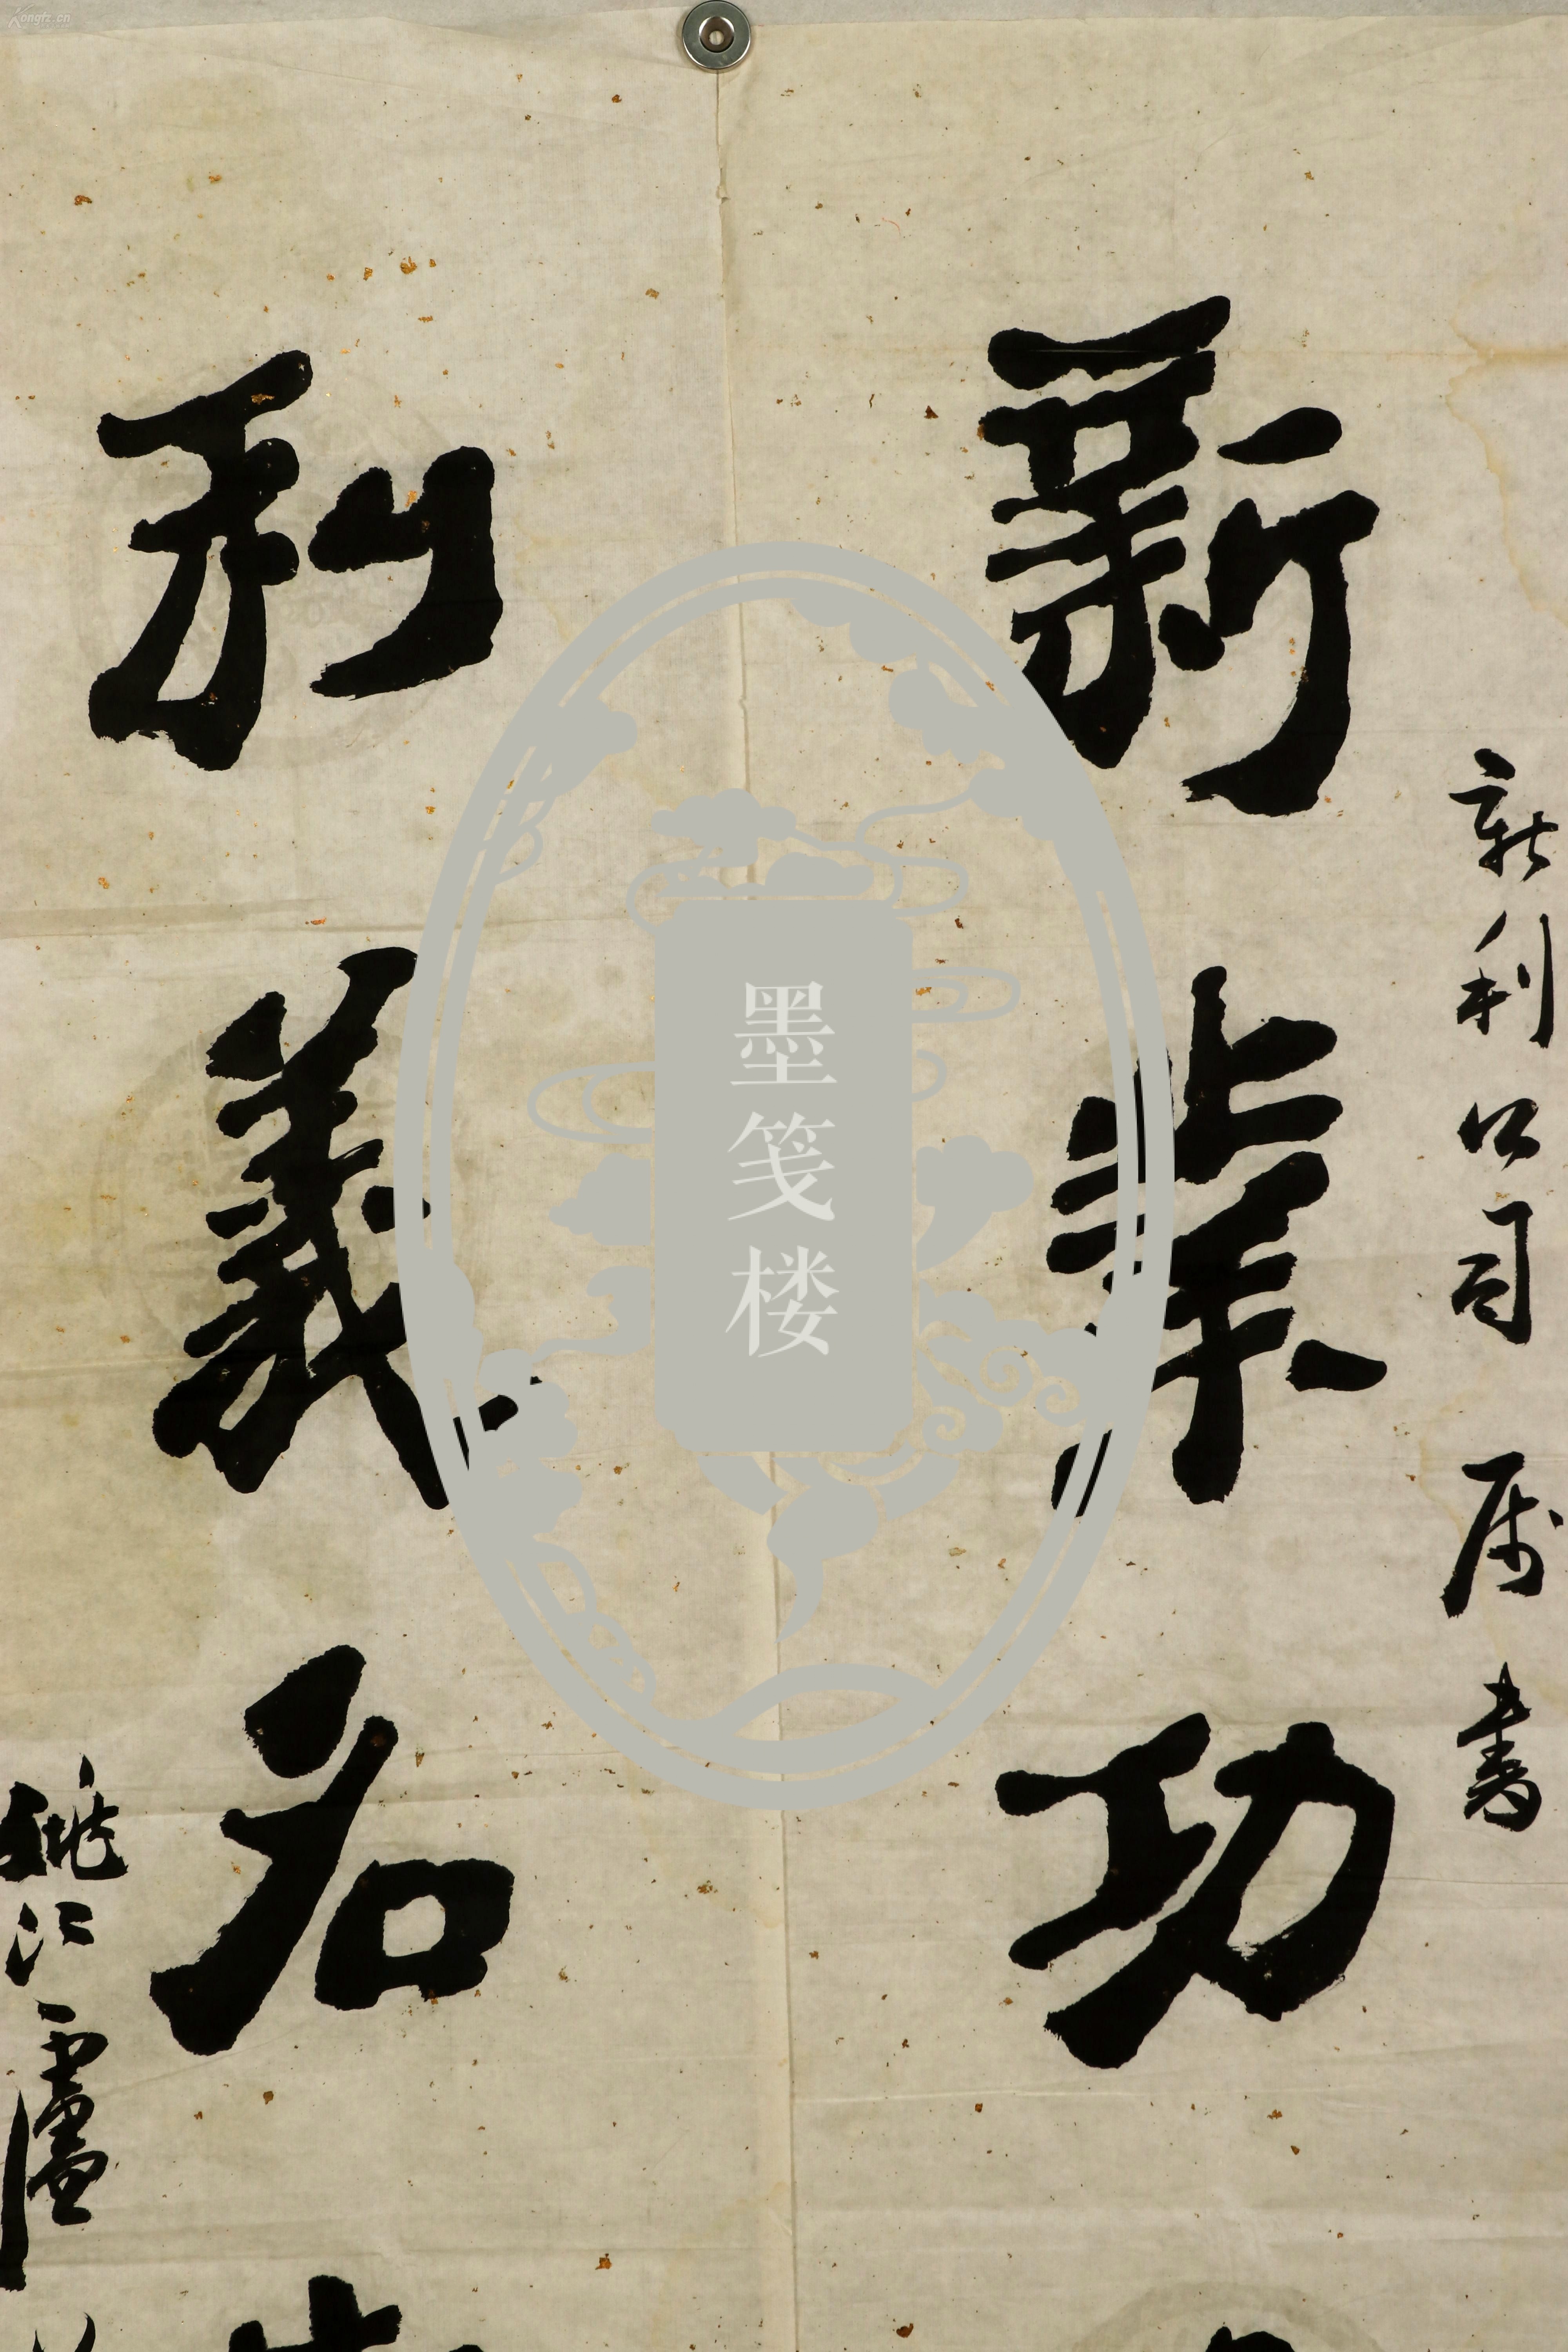 新利公司 屬書
新業功
利義名
姚江盧
墨笺楼
Kongfz.cn